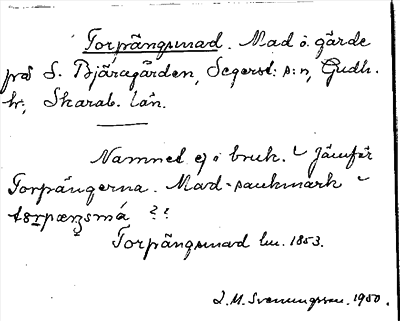 Torpängsmad. Mad o. gärde
på S. Bjäragården, Segerst: s:n, Gudh.
hr, Skarab. län.
Namnet ej i bruk. Jämför
Torpängerna. Mad-sankmark
Torpängsmad lm. 1853.
L.M. Svenungsson. 1950.